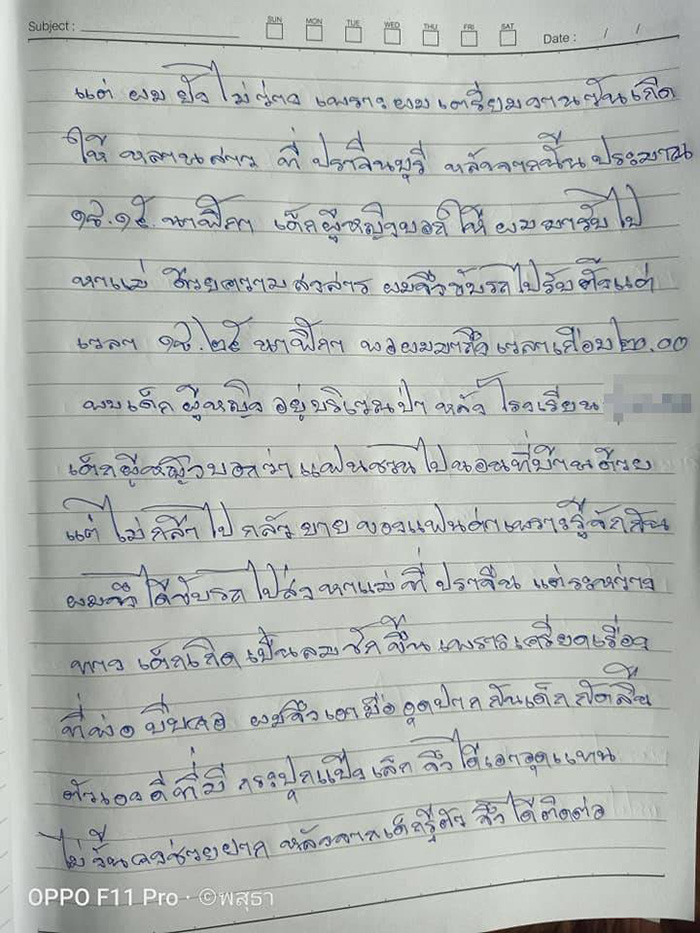 Subject :
SUN MON TUE WED THU FRI SAT
Date : / /
แต่ ผม ยังไม่ว่าง เพราะผมเตรียมงานวันเกิด
ให้ หลานสาว ที่ ปราจีนบุรี หลังจากนั้น ประมาณ
๑๘.๑๕. นาฬิกา เด็กผู้หญิงบอกให้ ผมมารับไป
หาแม่ ด้วยความสงสาร ผมจึงขับรถไปรับตั้งแต่
เวลา ๑๘.๒๕ นาฬิกา พอผมมาถึงเวลาเกือบ ๒๐.๐๐
พบเด็กผู้หญิง อยู่บริเวณป่า หลังโรงเรียน
เด็กผู้หญิงบอกว่า แฟนชวนไปนอนที่บ้านด้วย
แต่ไม่กล้าไป กลัวยายของแฟนด่าเพราะรู้จักกัน
ผมจึงได้ขับรถไปส่งหาแม่ที่ ปราจีน แต่ระหว่าง
ทาง เด็กเกิดเป็นลมชักขึ้น เพราะเครียดเรื่อง
ที่พ่อบีบคอ ผมจึงเอามือ อุดปากกันเด็กกัดลิ้น
ตัวเองดีที่มี กระปุกแป้งเล็ก จึงได้เอาอุดแทน
ไม่งั้นคงช่วยยาก หลังจากเด็กรู้ตัว จึงได้ติดต่อ
OPPO F11 Pro · ©พสุธา